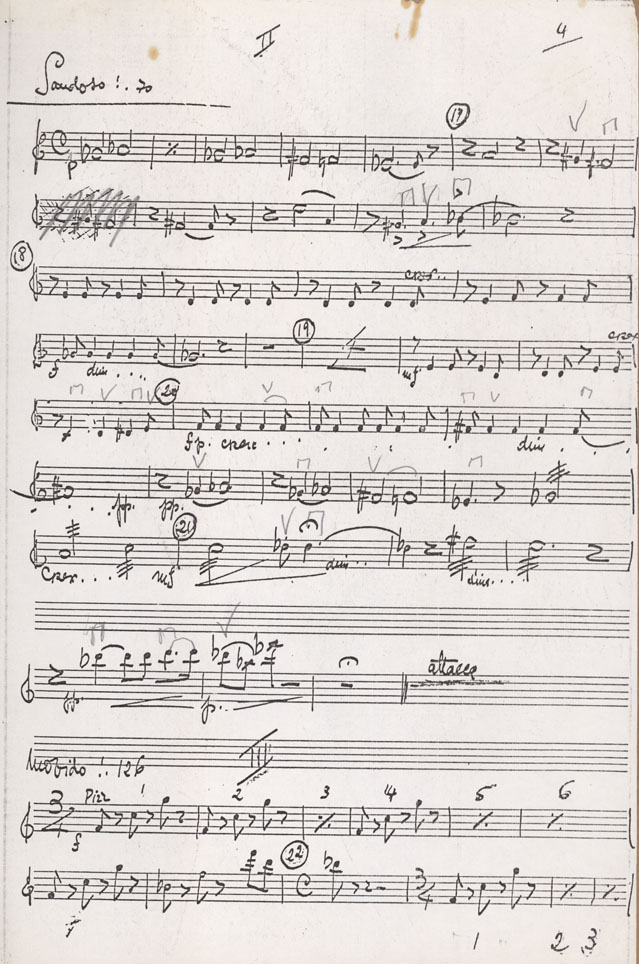 II 4
Saudoso ♩. 70
17
p
18
cresc..
19 cresc
f dim....
mf
20
fp. cresc.... dim.
pp. pp.
21
Cresc... mf dim... dim...
attacca
pp. p.
III
Morbido ♩. 126
Pizz 1 2 3 4 5 6
f
22
f
1 2 3